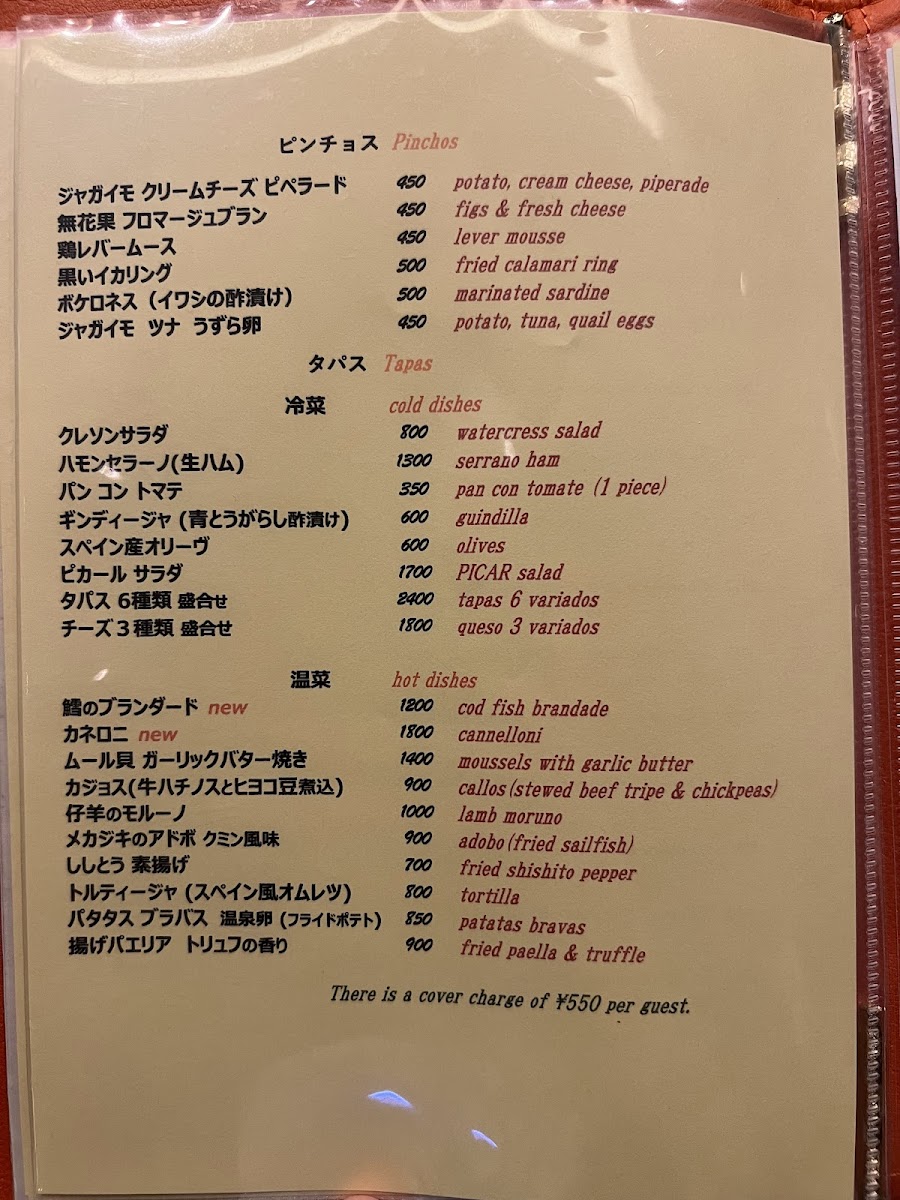 ピンチョス Pinchos
ジャガイモ クリームチーズ ピペラード 450 potato, cream cheese, piperade
無花果 フロマージュブラン 450 figs & fresh cheese
鶏レバームース 450 lever mousse
黒いイカリング 500 fried calamari ring
ボケロネス (イワシの酢漬け) 500 marinated sardine
ジャガイモ ツナ うずら卵 450 potato, tuna, quail eggs
タパス Tapas
冷菜 cold dishes
クレソンサラダ 800 watercress salad
ハモンセラーノ(生ハム) 1300 serrano ham
パン コン トマテ 350 pan con tomate (1 piece)
ギンディージャ (青とうがらし酢漬け) 600 guindilla
スペイン産オリーヴ 600 olives
ピカール サラダ 1700 PICAR salad
タパス 6種類 盛合せ 2400 tapas 6 variados
チーズ3種類 盛合せ 1800 queso 3 variados
温菜 hot dishes
鱈のブランダード new 1200 cod fish brandade
カネロニ new 1800 cannelloni
ムール貝 ガーリックバター焼き 1400 moussels with garlic butter
カジョス(牛ハチノスとヒヨコ豆煮込) 900 callos(stewed beef tripe & chickpeas)
仔羊のモルーノ 1000 lamb moruno
メカジキのアドボ クミン風味 900 adobo(fried sailfish)
ししとう 素揚げ 700 fried shishito pepper
トルティージャ (スペイン風オムレツ) 800 tortilla
パタタス ブラバス 温泉卵 (フライドポテト) 850 patatas bravas
揚げパエリア トリュフの香り 900 fried paella & truffle
There is a cover charge of ¥550 per guest.